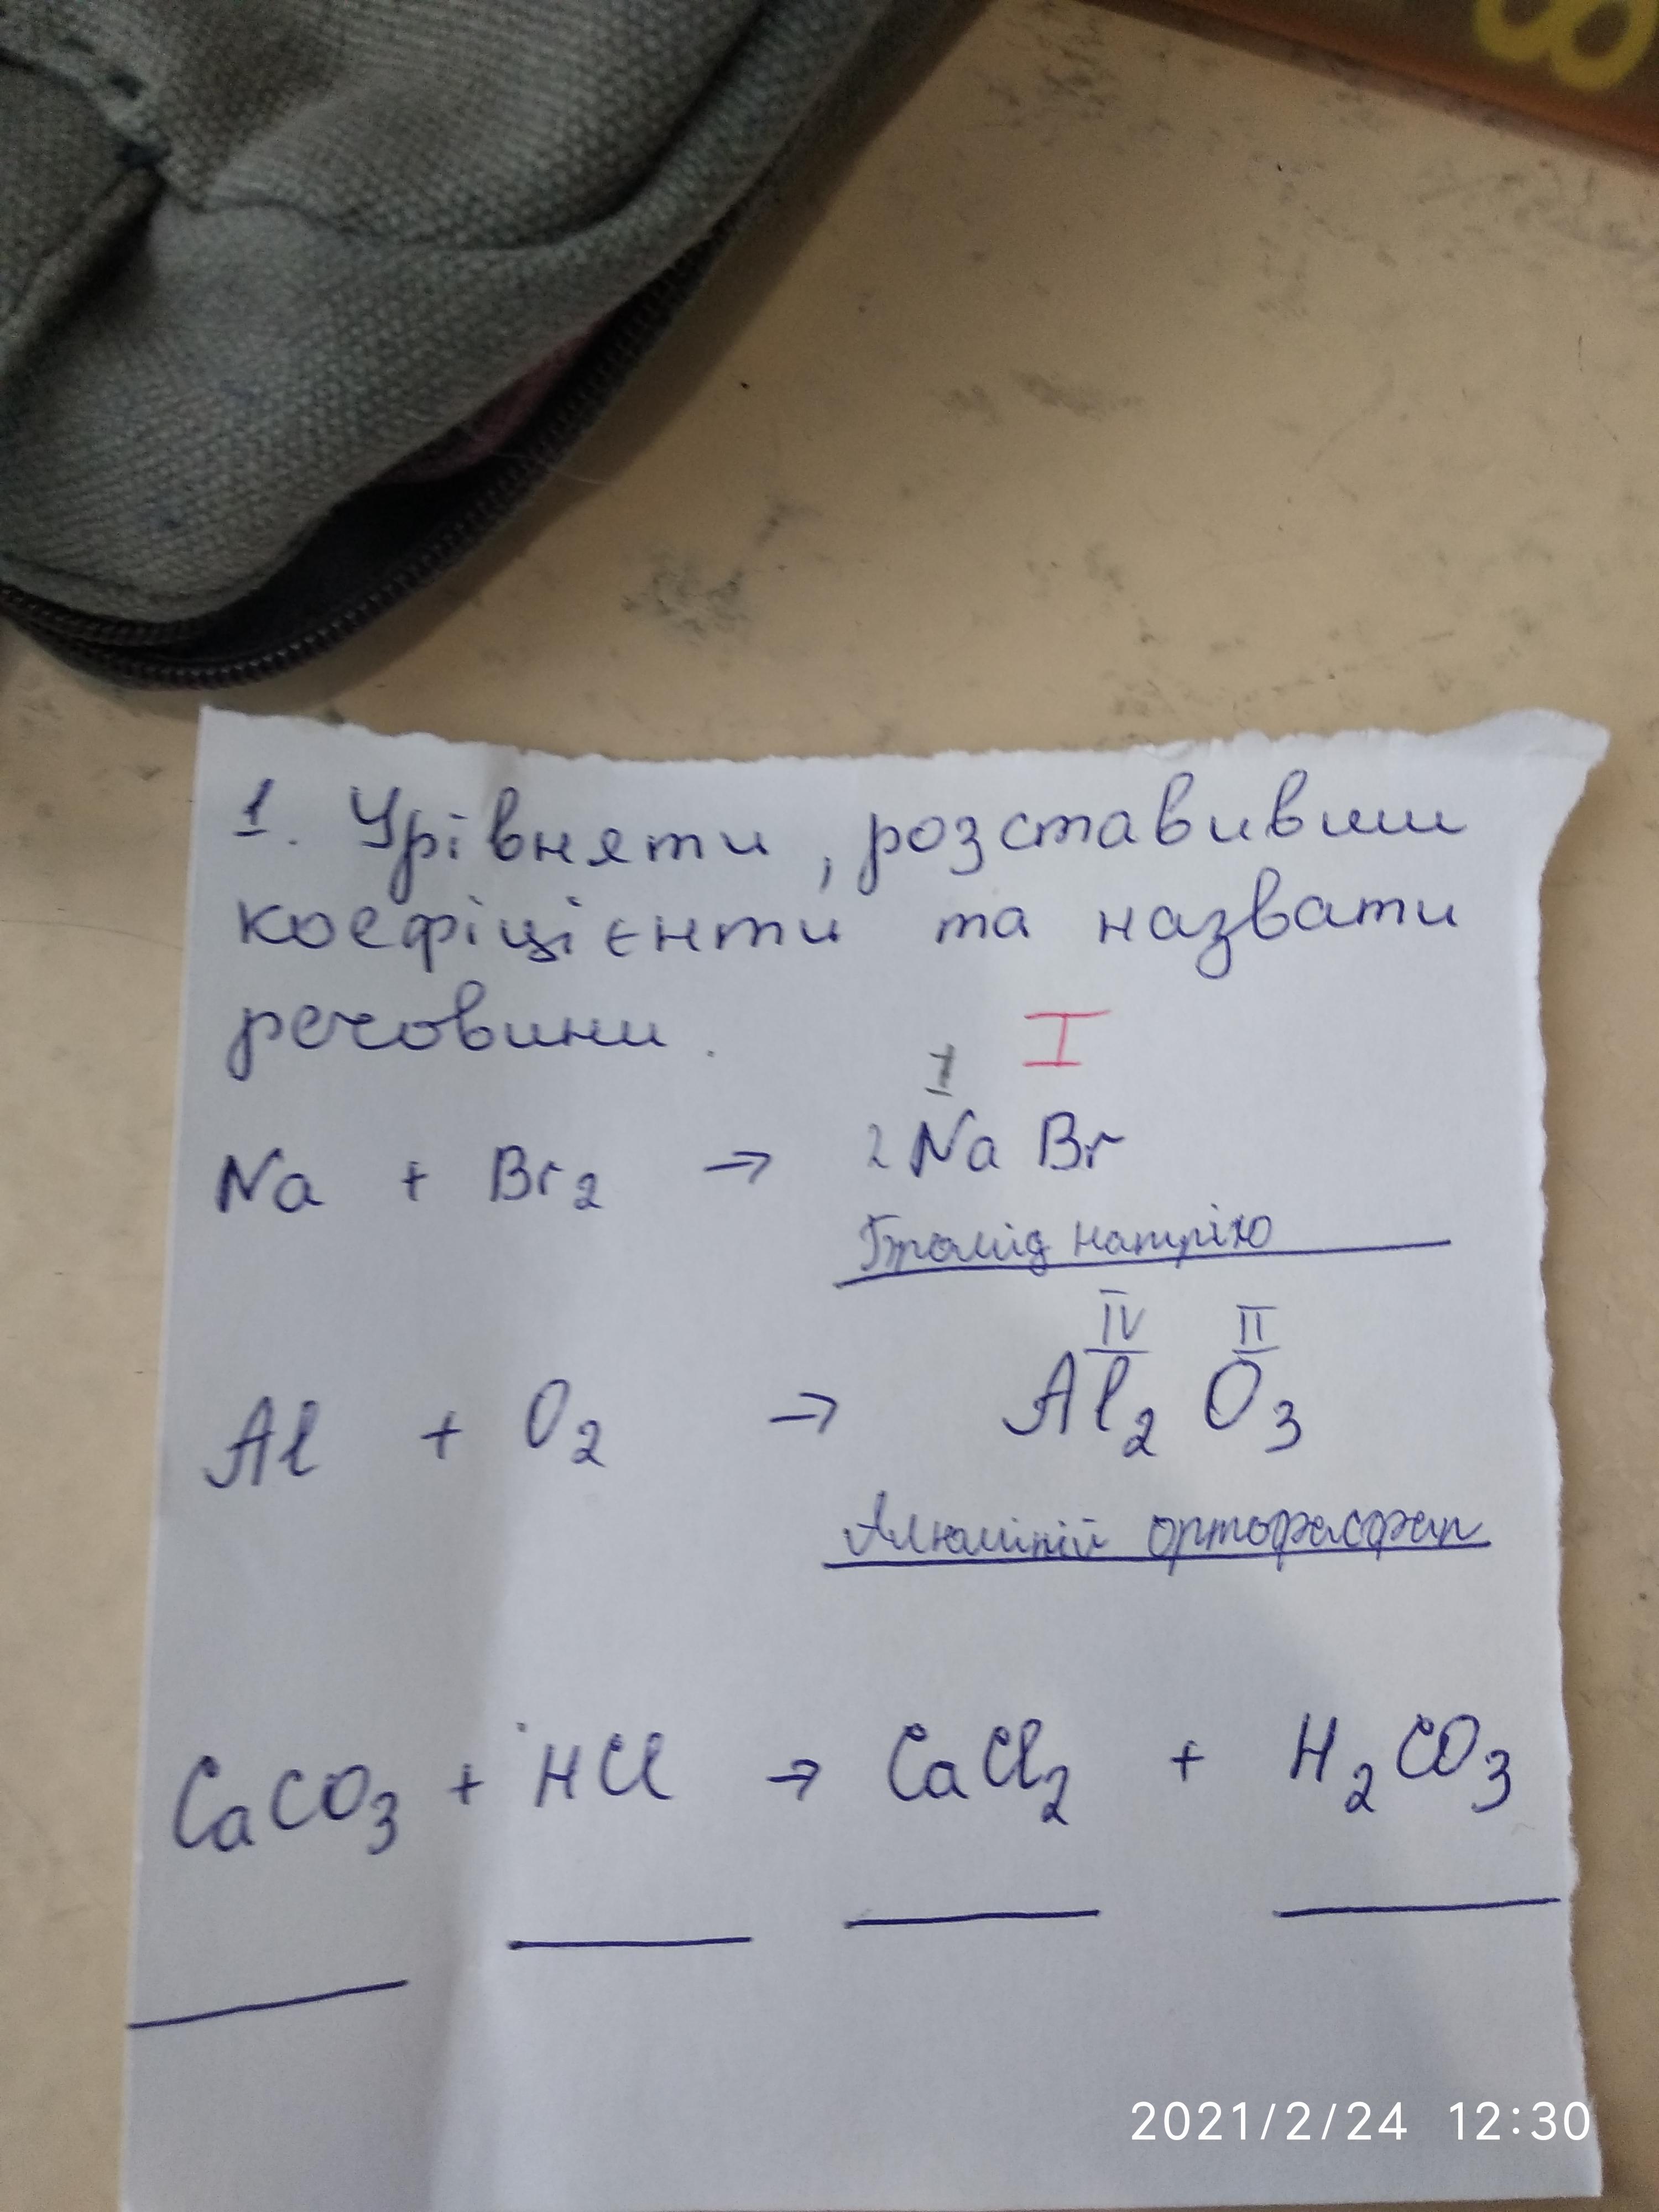 8
1. Урівняти, розставивши
коефіцієнти та назвати
речовини.
I I
Na + Br₂ → 2NaBr
Бромід натрію
IV II
Al + O₂ → Al₂O₃
Алюміній ортофосфат
CaCO₃ + HCl → CaCl₂ + H₂CO₃
2021/2/24 12:30